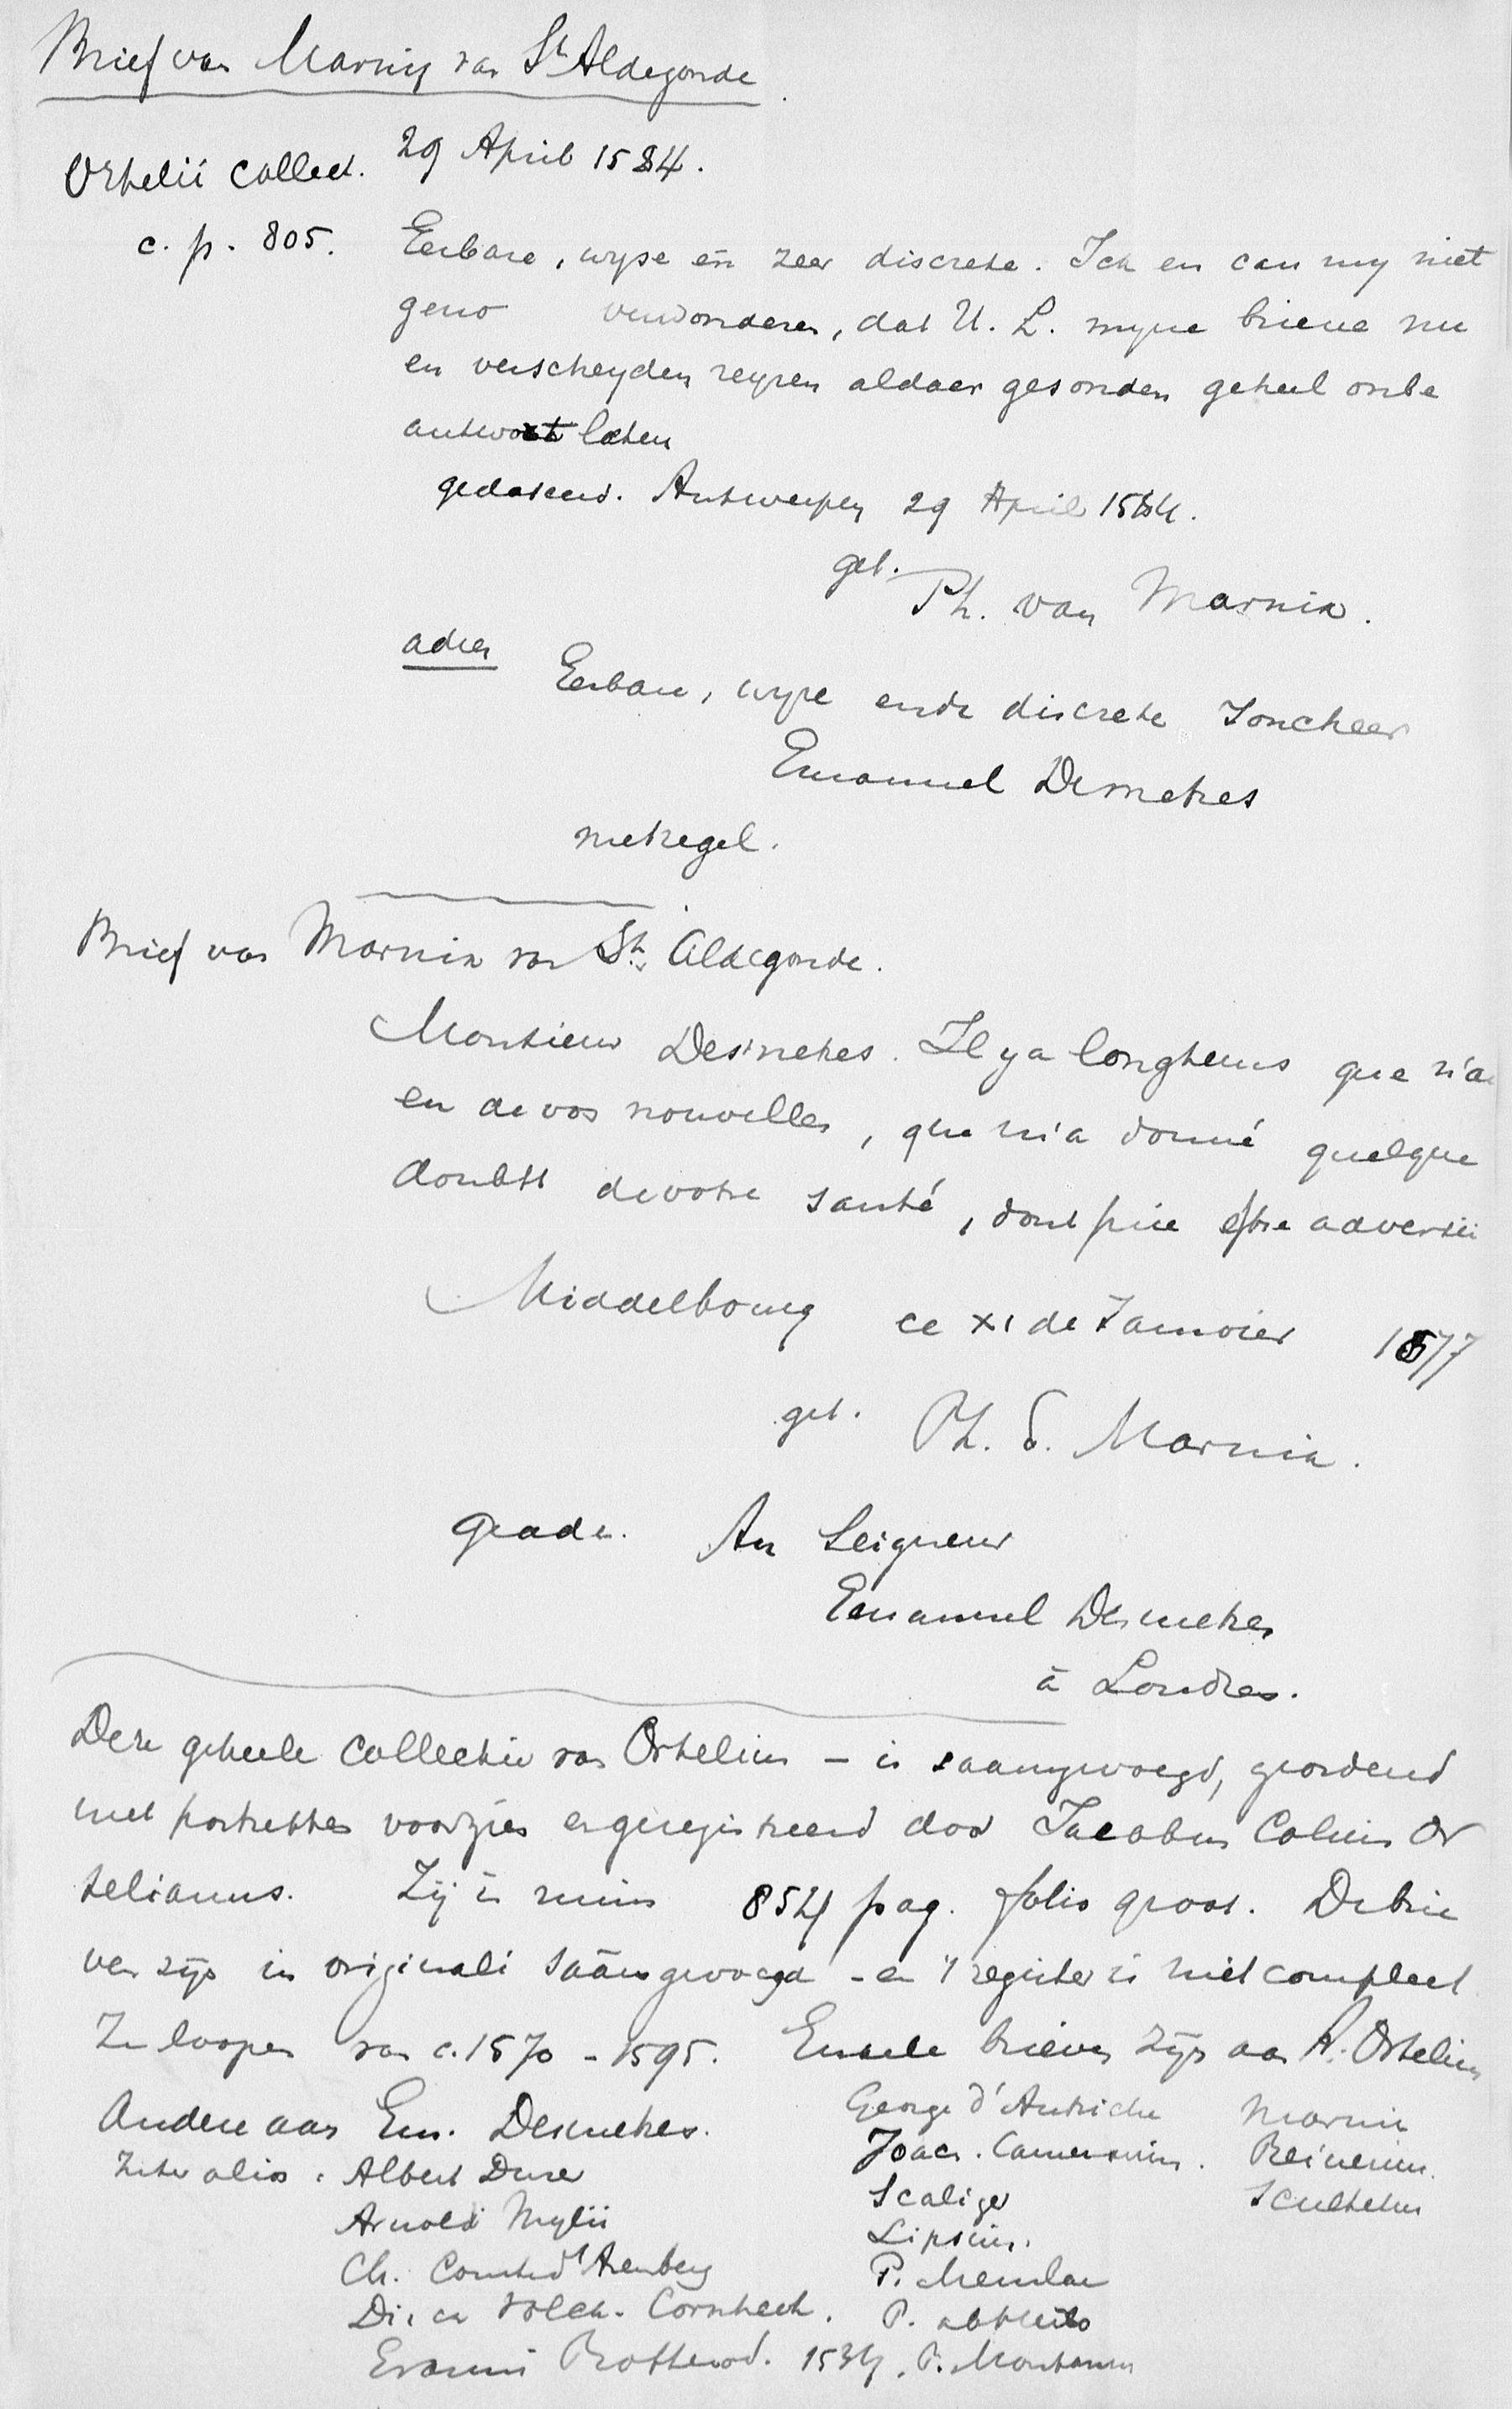 Brief van Marnix van St Aldegonde
Ortelii collect. 29 April 1584.
c. p. 805. Eerbare, wyse eñ zeer discrete. Ick en can my niet
geno verwonderen, dat U. L. myne brieve nu
en verscheyden reysen aldaer gesonden geheel onbe
antwort laten
gedateerd. Antwerpen 29 April 1584.
get.
Ph. van Marnix.
adres Eerbare, wyse ende discrete Joncheer
Emanuel Demetres
met zegel.
Brief van Marnix van St. Aldegonde.
Monsieur Desmetres. Il y a longtems que n'ai
eu de vos nouvelles, que m'a donné quelque
doubte de votre santé, dont prie estre adverti
Middelbourg ce xi de Janvier 1577
get. Ph. d. Marnix.
geadr. Au Seigneur
Emanuel Desmetres
à Londres.
Deze geheele collectie van Ortelius – is saamgevoegd, geordend
met portretten voorzien en geregistreerd door Jacobus Colius Or
telianus. Zij is ruim 854 pag. folio groot. De brie
ven zijn in originali saâmgevoegd – en 't register is niet compleet
Ze loopen van c. 1570 – 1595. Enkele brieven zijn aan A. Ortelius
Andere aan Em. Desmetres. George d'Autriche Marnix
Inter alios. Albert Durer Joach. Camerarius. Reinerius.
Arnold Mylii Scaliger Scultetus
Lipsius.
Ch. Comte d'Arenberg P. Merulae
Volck. Cornhert. P.
Erasmi Rotterod. 1534. P. Montanus